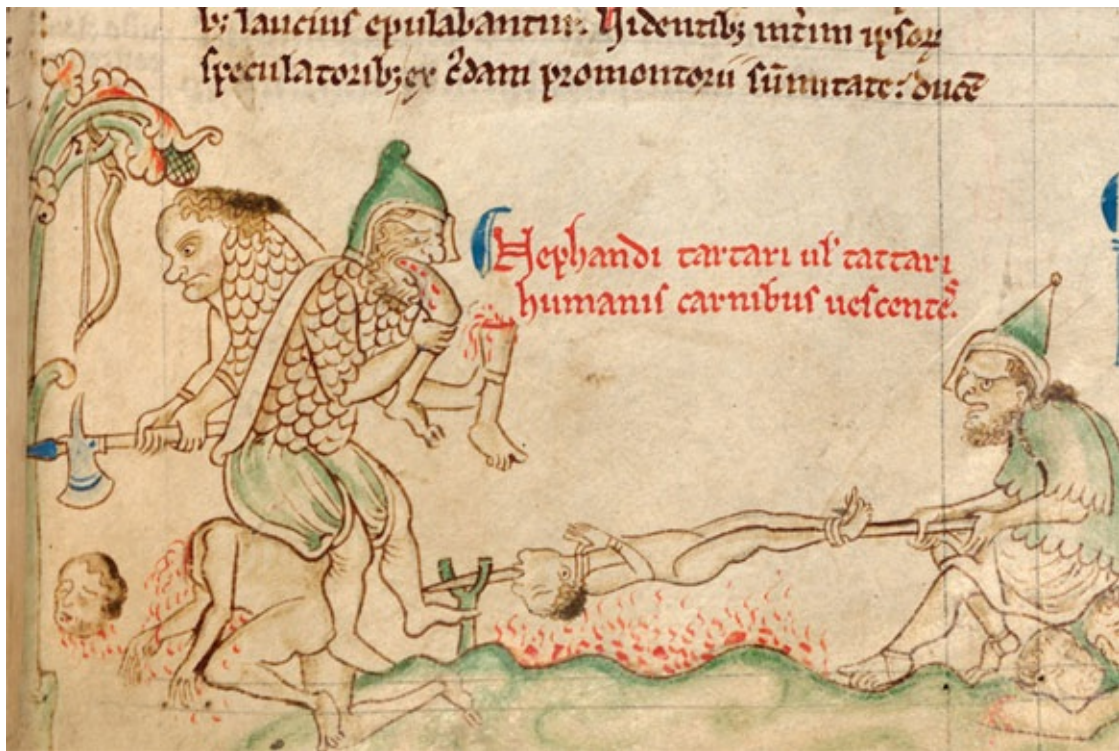 bꝫ laucius epulabantur. Uidentibꝫ int̃im ipsoꝝ
speculatoribꝫ ex c̃dam promontorii sũmitate: ducẽ
Nephandi tartari ul' tattari
humanis carnibus uescentes.